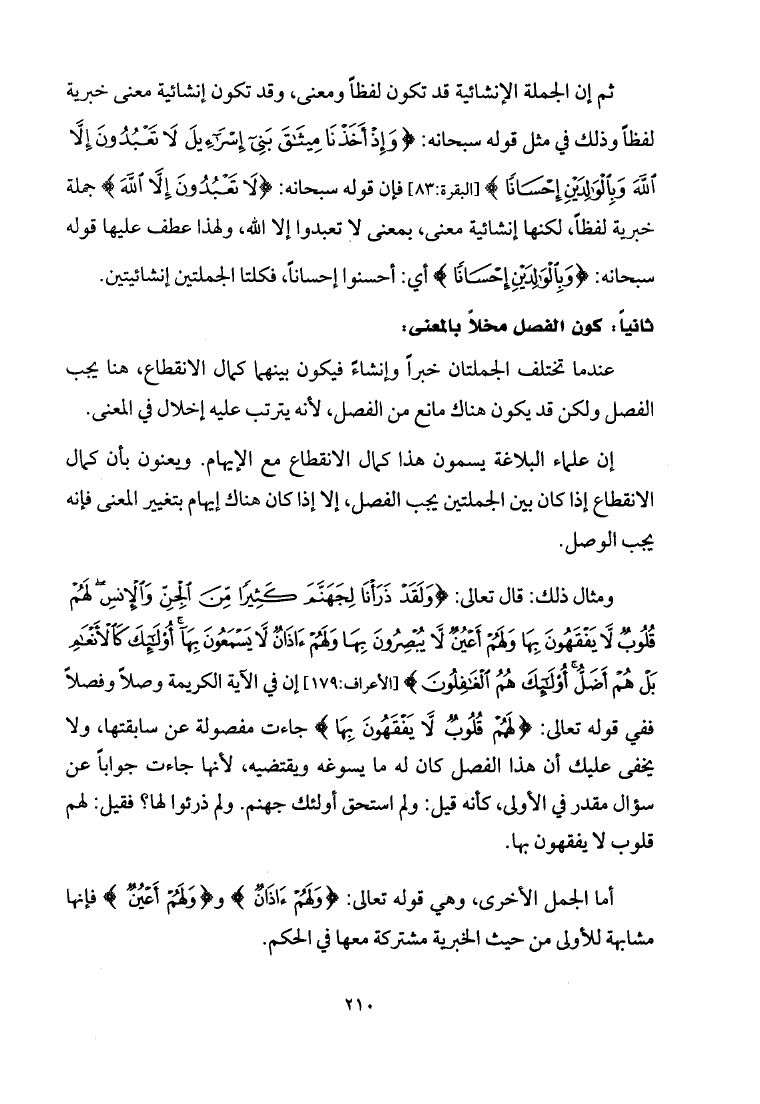 ثم إن الجملة الإنشائية قد تكون لفظاً ومعنى، وقد تكون إنشائية معنى خبرية
لفظاً وذلك في مثل قوله سبحانه: ﴿ وَإِذْ أَخَذْنَا مِيثَٰقَ بَنِىٓ إِسْرَٰٓءِيلَ لَا تَعْبُدُونَ إِلَّا
ٱللَّهَ وَبِٱلْوَٰلِدَيْنِ إِحْسَانًا ﴾ [البقرة:٨٣] فإن قوله سبحانه: ﴿لَا تَعْبُدُونَ إِلَّا ٱللَّهَ ﴾ جملة
خبرية لفظاً، لكنها إنشائية معنى، بمعنى لا تعبدوا إلا الله، ولهذا عطف عليها قوله
سبحانه: ﴿وَبِٱلْوَٰلِدَيْنِ إِحْسَانًا ﴾ أي: أحسنوا إحساناً، فكلتا الجملتين إنشائيتين.
ثانياً: كون الفصل مخلاً بالمعنى:
عندما تختلف الجملتان خبراً وإنشاءً فيكون بينهما كمال الانقطاع، هنا يجب
الفصل ولكن قد يكون هناك مانع من الفصل، لأنه يترتب عليه إخلال في المعنى.
إن علماء البلاغة يسمون هذا كمال الانقطاع مع الإيهام. ويعنون بأن كمال
الانقطاع إذا كان بين الجملتين يجب الفصل، إلا إذا كان هناك إيهام بتغيير المعنى فإنه
يجب الوصل.
ومثال ذلك: قال تعالى: ﴿وَلَقَدْ ذَرَأْنَا لِجَهَنَّمَ كَثِيرًا مِّنَ ٱلْجِنِّ وَٱلْإِنسِ ۖ لَهُمْ
قُلُوبٌ لَّا يَفْقَهُونَ بِهَا وَلَهُمْ أَعْيُنٌ لَّا يُبْصِرُونَ بِهَا وَلَهُمْ ءَاذَانٌ لَّا يَسْمَعُونَ بِهَآ ۚ أُو۟لَٰٓئِكَ كَٱلْأَنْعَٰمِ
بَلْ هُمْ أَضَلُّ ۚ أُو۟لَٰٓئِكَ هُمُ ٱلْغَٰفِلُونَ ﴾ [الأعراف:١٧٩] إن في الآية الكريمة وصلاً وفصلاً
ففي قوله تعالى: ﴿ لَهُمْ قُلُوبٌ لَّا يَفْقَهُونَ بِهَا ﴾ جاءت مفصولة عن سابقتها، ولا
يخفى عليك أن هذا الفصل كان له ما يسوغه ويقتضيه، لأنها جاءت جواباً عن
سؤال مقدر في الأولى، كأنه قيل: ولم استحق أولئك جهنم. ولم ذرئوا لها؟ فقيل: لهم
قلوب لا يفقهون بها.
أما الجمل الأخرى، وهي قوله تعالى: ﴿وَلَهُمْ ءَاذَانٌ ﴾ و﴿وَلَهُمْ أَعْيُنٌ ﴾ فإنها
مشابهة للأولى من حيث الخبرية مشتركة معها في الحكم.
٢١٠